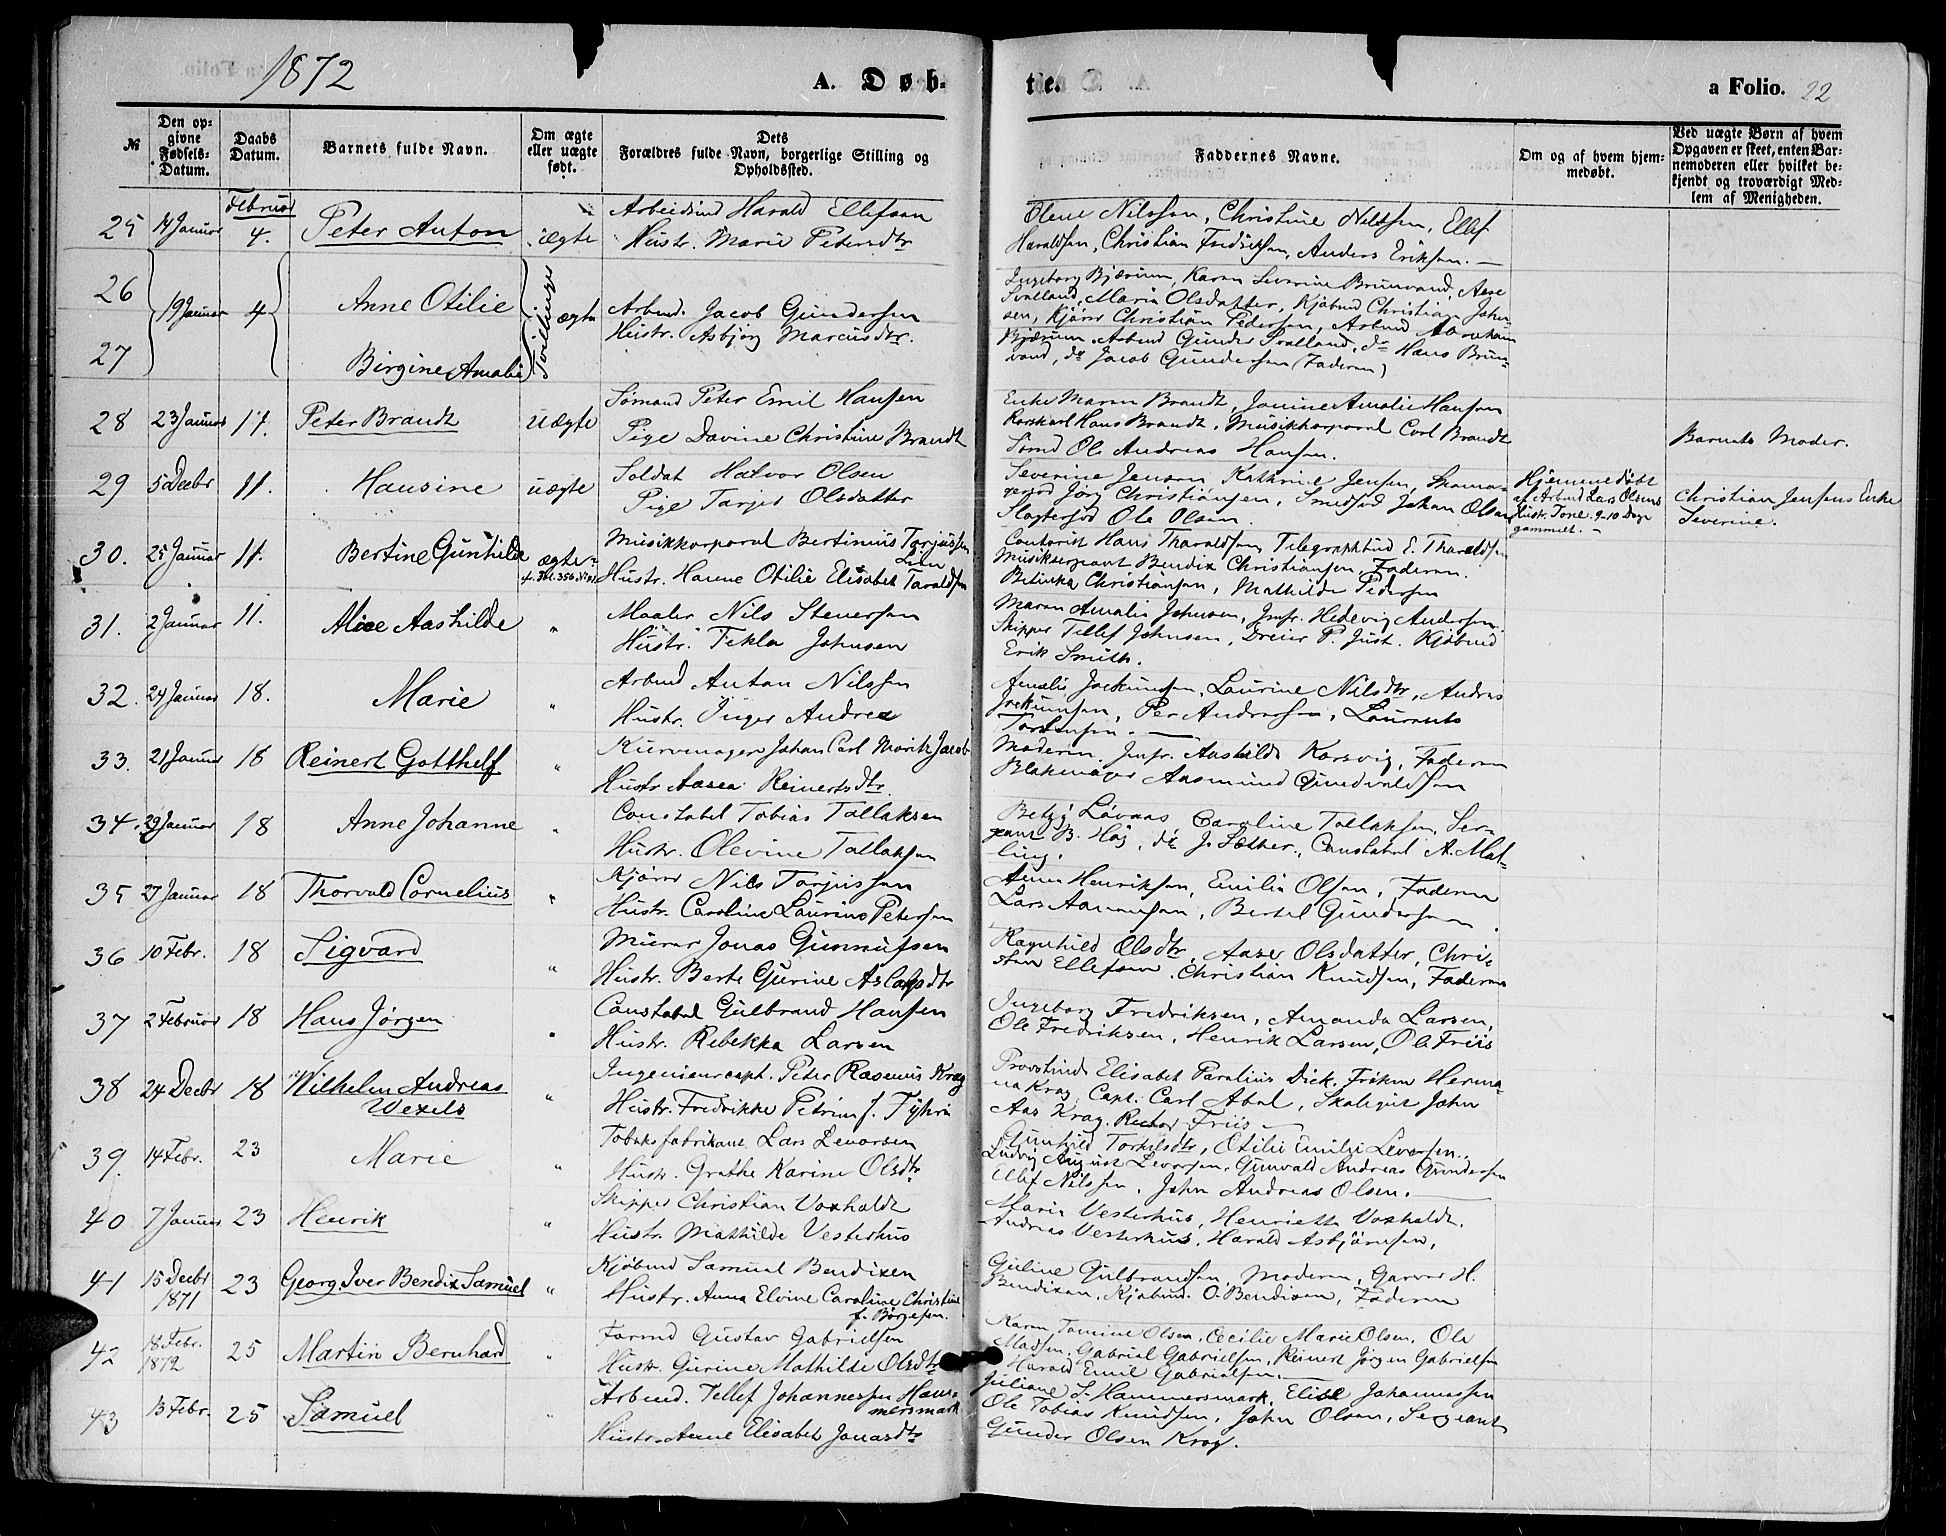 1872
A. Døb-
te.
a Folio. 22
№
Den op-
givne
Fødsels-
Datum.
Daabs
Datum.
Barnets fulde Navn.
Om ægte
eller uægte
født.
Dets
Forældres fulde Navn, borgerlige Stilling og
Opholdssted.
Faddernes Navne.
Om og af hvem hjem-
medøbt.
Ved uægte Børn af hvem
Opgaven er skeet, enten Bar-
nemoderen eller hvilket be-
kjendt og troværdigt Med-
lem af Menigheden.
Februar
25 14 Januar 4. Peter Anton ægte
Harald Ellefsen
Hustr. Marie Petersdtr
Olene Nilssen, Christine Nilssen, Ellef
Haraldsen, Christian Fredriksen, Anders Eriksen. —
26
27
19 Januar 4
Anne Otilie
Birgine Amalie
Tvillinger
ægte
Arbmd. Jacob Gundersen
Hustr. Asbjørg Marcusdtr.
Ingeborg Bjærum, Karen Severine Brunvand, Aase
Svalland, Maria Olsdatter, Kjøbmd Christian John-
sen, Kjører Christian Pedersen, Arbmd Abraham
Bjærum, Arbmd Gunder Svalland, do Hans Brun-
vand, do Jacob Gundersen (Faderen)
28 23 Januar 11. Peter Brandt uægte
Sømand Peter Emil Hansen
Pige Davine Christine Brandt
Enke Maren Brandt, Janine Amalie Hansen
Hans Brandt, Musikkorporal Carl Brandt
Sømd Ole Andreas Hansen.
Barnets Moder.
29 5 Decbr 11. Hansine uægte
Soldat Halvor Olsen
Pige Tarjer Olsdatter
Severine Jensen, Kathrine Jensen,
Jørg Christiansen, Smedsvd Johan Olsen
Slagtersvd Ole Olsen.
Hjemmedøbt
af Arbmd Lars Olsens
Hustr. Tone. 9-10 Dage
gammel. —
Christian Jensens Enke
Severine.
30. 25 Januar 11. Bertine Gunhilde ægte
Musikkorporal Bertinius Tarjussen
Hustr. Hanne Otilie Elisabet Taraldsen
Contorist Hans Tharaldsen, E. Tharaldsen
Musiksergeant Bendix Christiansen, Faderen.
Betinka Christiansen, Mathilde Pedersen
31. 2 Januar 11. Alice Aashilde "
Maaler Nils Stenersen
Hustr. Tekla Johnsen
Maren Amalie Johnsen, Jmfr. Hedevig Andersen
Skipper Tellef Johnsen, Dreier P. Just. Kjøbmd
Erik Smith.
32. 24 Januar 18. Marie "
Arbmd Anton Nilssen
Hustr. Inger Andrea
Amalie Jockumsen, Laurine Nilsdtr, Andreas
Jockumsen, Per Andersen, Laurents
Torstensen. —
33. 21 Januar 18 Reinert Gotthelf "
Kurvemager Johan Carl Moritz Jacob
Hustr Aasea Reinertsdtr.
Moderen. Jmfr. Aashilde Korsvig, Faderen
Blokmager Aasmund Gundvaldsen
34. 29 Januar 18 Anne Johanne "
Constabel Tobias Tallaksen
Hustr. Olevine Tallaksen
Betzy Løvaas Caroline Tallaksen, Ser-
geant B. Høg, do J. Sæther, Constabel A. Mat-
ling.
35 27 Januar 18 Thorvald Cornelius "
Kjører Nils Tarjussen
Hustr. Caroline Laurine Petersen
Anne Henriksen, Emilie Olsen, Faderen
Lars Aanonsen, Bertel Gundersen
36 10 Febr. 18 Sigvard "
Murer Jonas Gunnufsen
Hustr. Berte Gurine Aslaksdtr
Ragnhild Olsdtr, Aase Olsdatter, Chri-
sten Ellefsen, Christian Knudsen, Faderen
37 2 Februar 18 Hans Jørgen "
Constabel Gulbrand Hansen
Hustr. Rebekka Larsen
Ingeborg Fredriksen, Amanda Larsen,
Ole Fredriksen, Henrik Larsen, Ole Friis
38 24 Decbr 18 Wilhelm Andreas
Wexels "
Ingenieurcapt. Peter Rasmus Krag
Hustr. Fredrikke Petrine f.
Provstinde Elisabet Paralius Dick. Frøken Herma-
na Krag, Capt. Carl Abel, John
Aas Krag, Rector Friis —
39. 14 Febr. 23 Marie "
Tobaksfabrikant Lars Levorsen
Hustr. Grethe Karine Olsdtr
Gunhild Torkelsdtr, Otilie Emilie Levorsen.
Ludvig August Levorsen, Gunvald Andreas Gundersen
Ellef Nilssen, John Andreas Olsen. —
40 7 Januar 23 Henrik "
Skipper Christian Voxholdt
Hustr. Mathilde Vesterhus
Maria Vesterhus, Henriette Voxholdt.
Andreas Vesterhus, Harald Asbjørnsen,
41 15 Decbr
1871 23 Georg Iver Bendix Samuel "
Kjøbmd Samuel Bendixen
Hustr. Anna Elvine Caroline Christine
f. Børgesen.
Guline Gulbrandsen, Moderen, Garver H.
Bendixen, Kjøbmd. O. Bendixen, Faderen
42 18 Febr.
1872 25 Martin Bernhard "
Gustav Gabrielsen
Hustr. Gurine Mathilde Olsdtr
Karen Tomine Olsen, Cecilie Marie Olsen, Ole
Madsen, Gabriel Gabrielsen, Reinert Jørgen Gabrielsen
Harald Emil Gabrielsen. —
43 13 Febr. 25 Samuel "
Arbmd. Tellef Johannessen Ham-
mersmark
Hustr. Anne Elisabet Jonasdtr
Juliane S. Hammersmark, Elise Johannessen
Ole Tobias Knudsen, John Olsen, Sergeant
Gunder Olsen Krag.